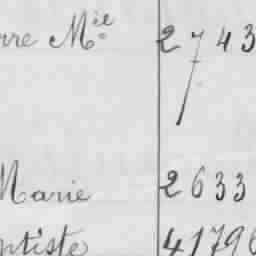 rre Mie 2743
Marie 2633
ptiste 41796